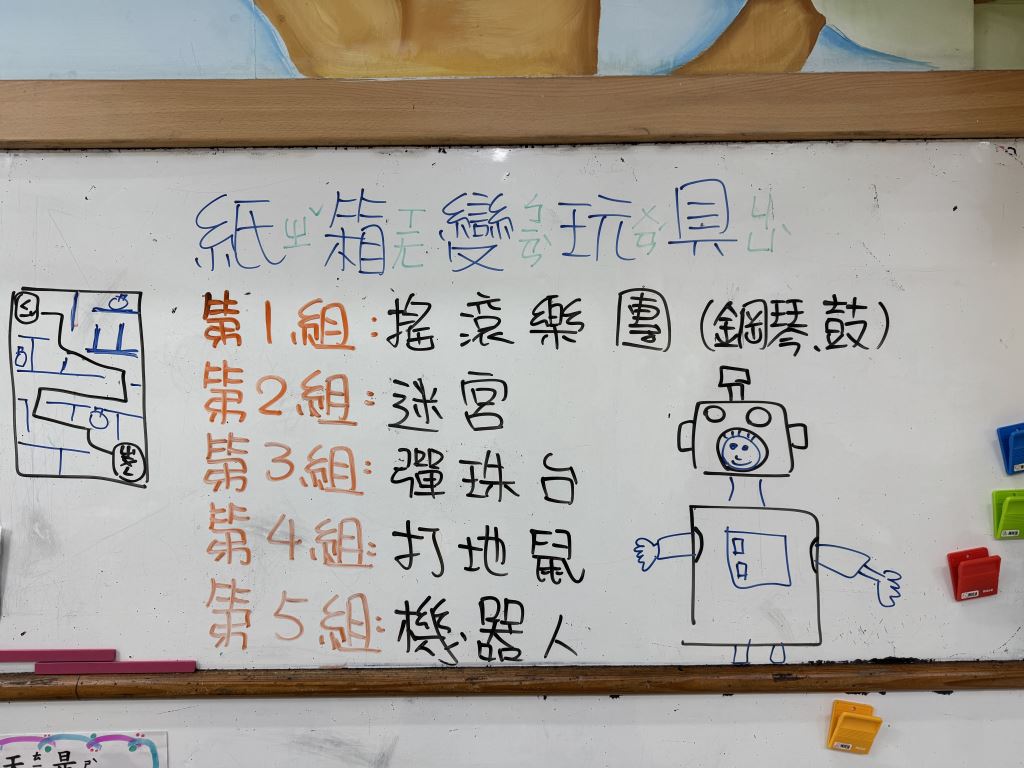 紙ㄓˇ箱ㄒㄤ變ㄅㄢˋ玩ㄨㄢˊ具ㄐㄩˋ
第1組：搖滾樂團（鋼琴、鼓）
第2組：迷宮
第3組：彈珠台
第4組：打地鼠
第5組：機器人